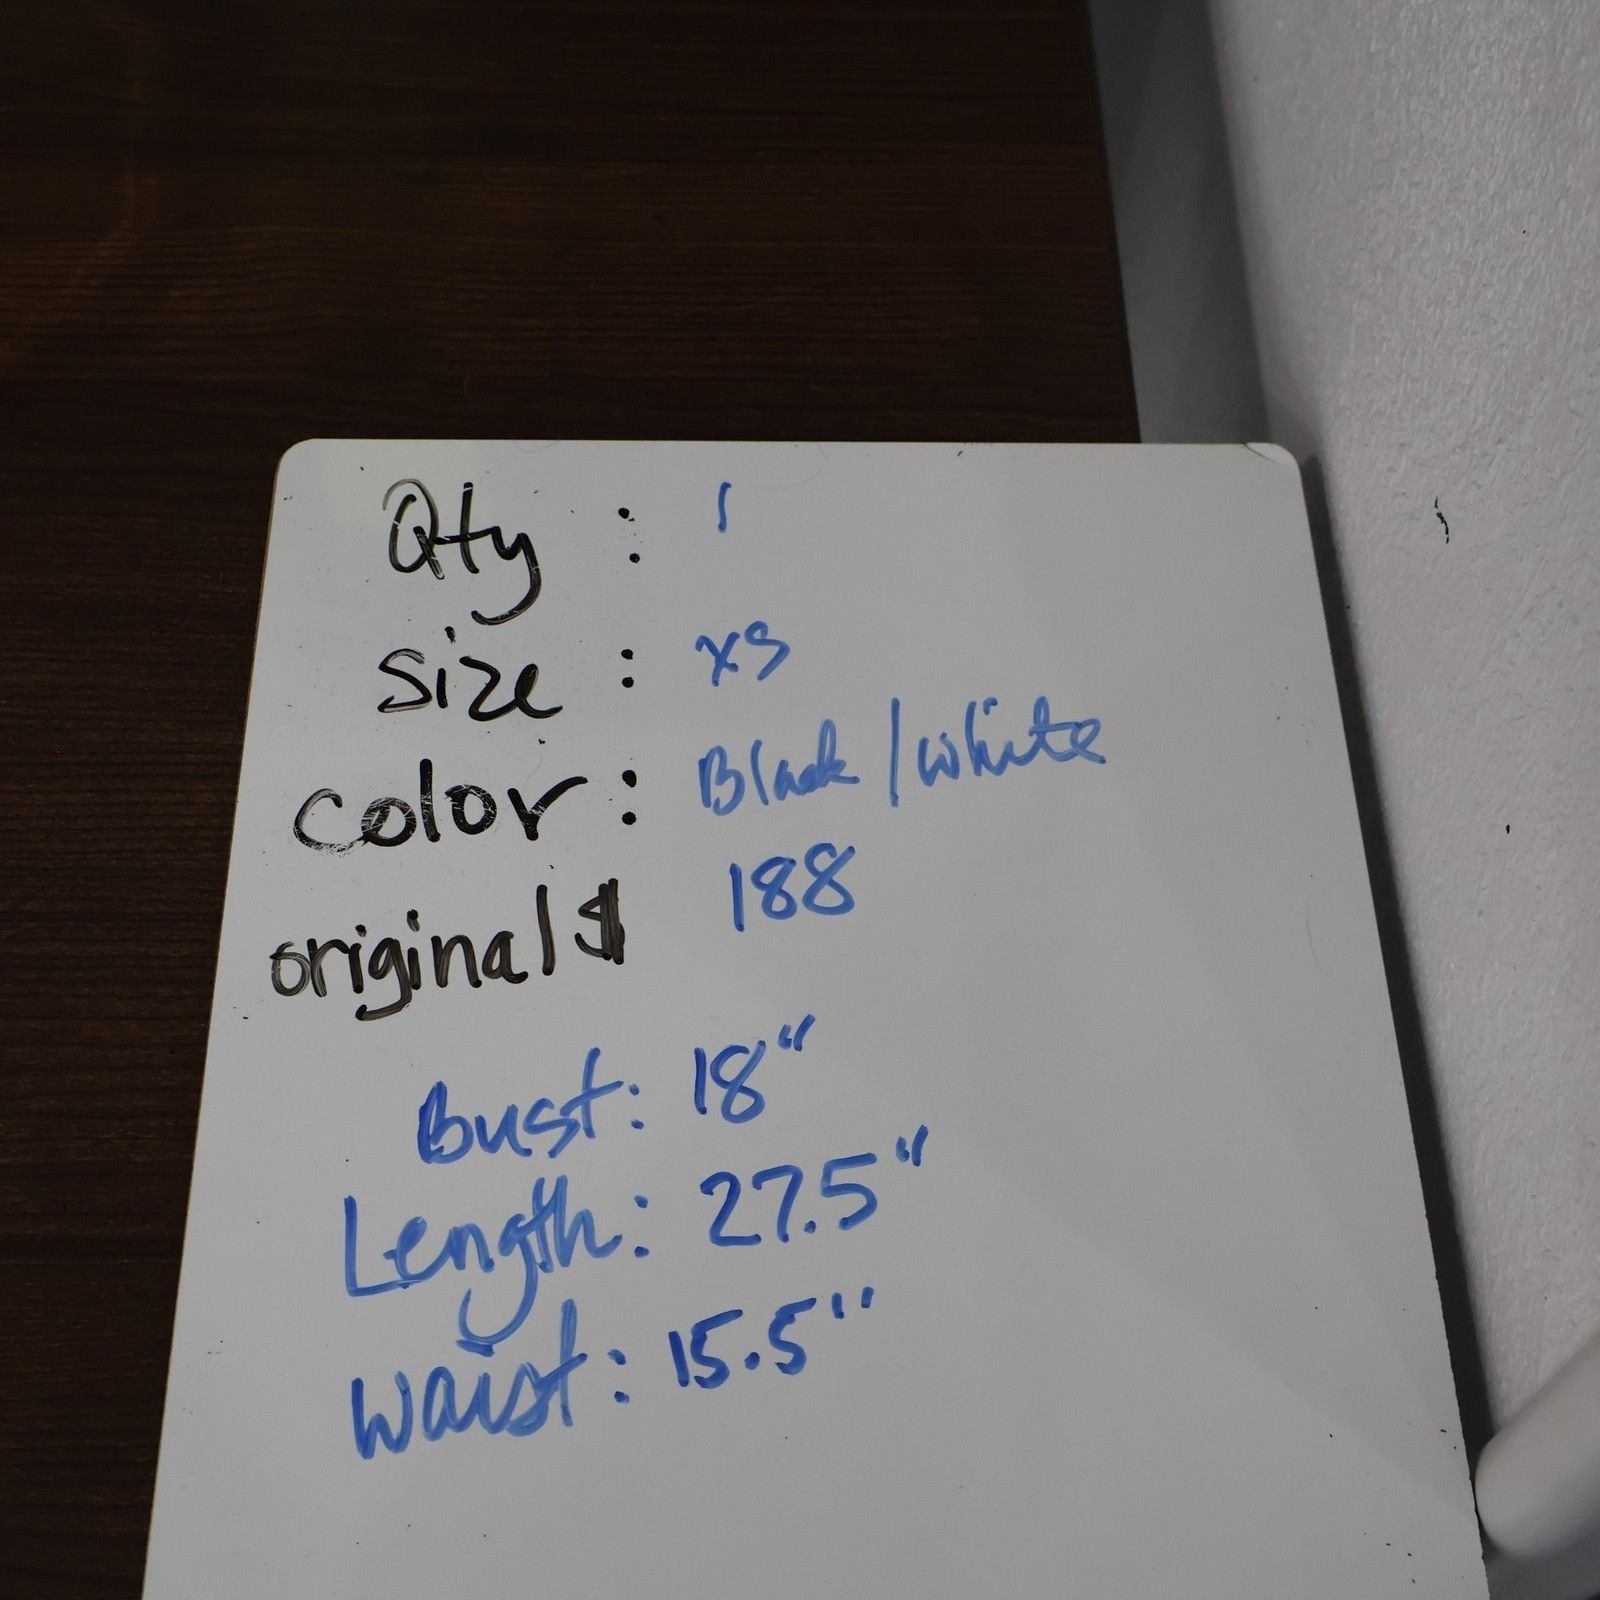 Qty : 1
Size : XS
Color : Black/white
original $ 188
Bust: 18"
Length: 27.5"
Waist: 15.5"